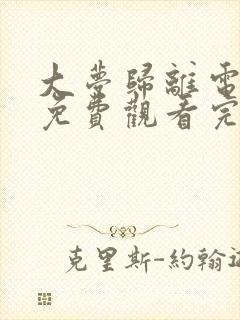 大夢歸離電
免費觀看完
克里斯-約翰遜